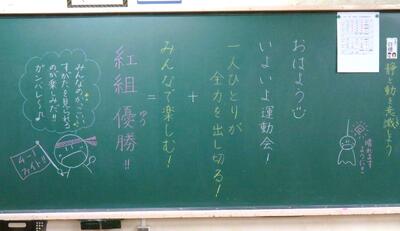 静と動を意識しよう
晴れますように
おはよう
いよいよ運動会!
一人ひとりが
全力を出し切る!
+
みんなで楽しむ!
=
紅組優勝!!
みんなのかっこいい
すがたを見られる
のが楽しみだ!!
ガンバレ〜♪
ファイト!!